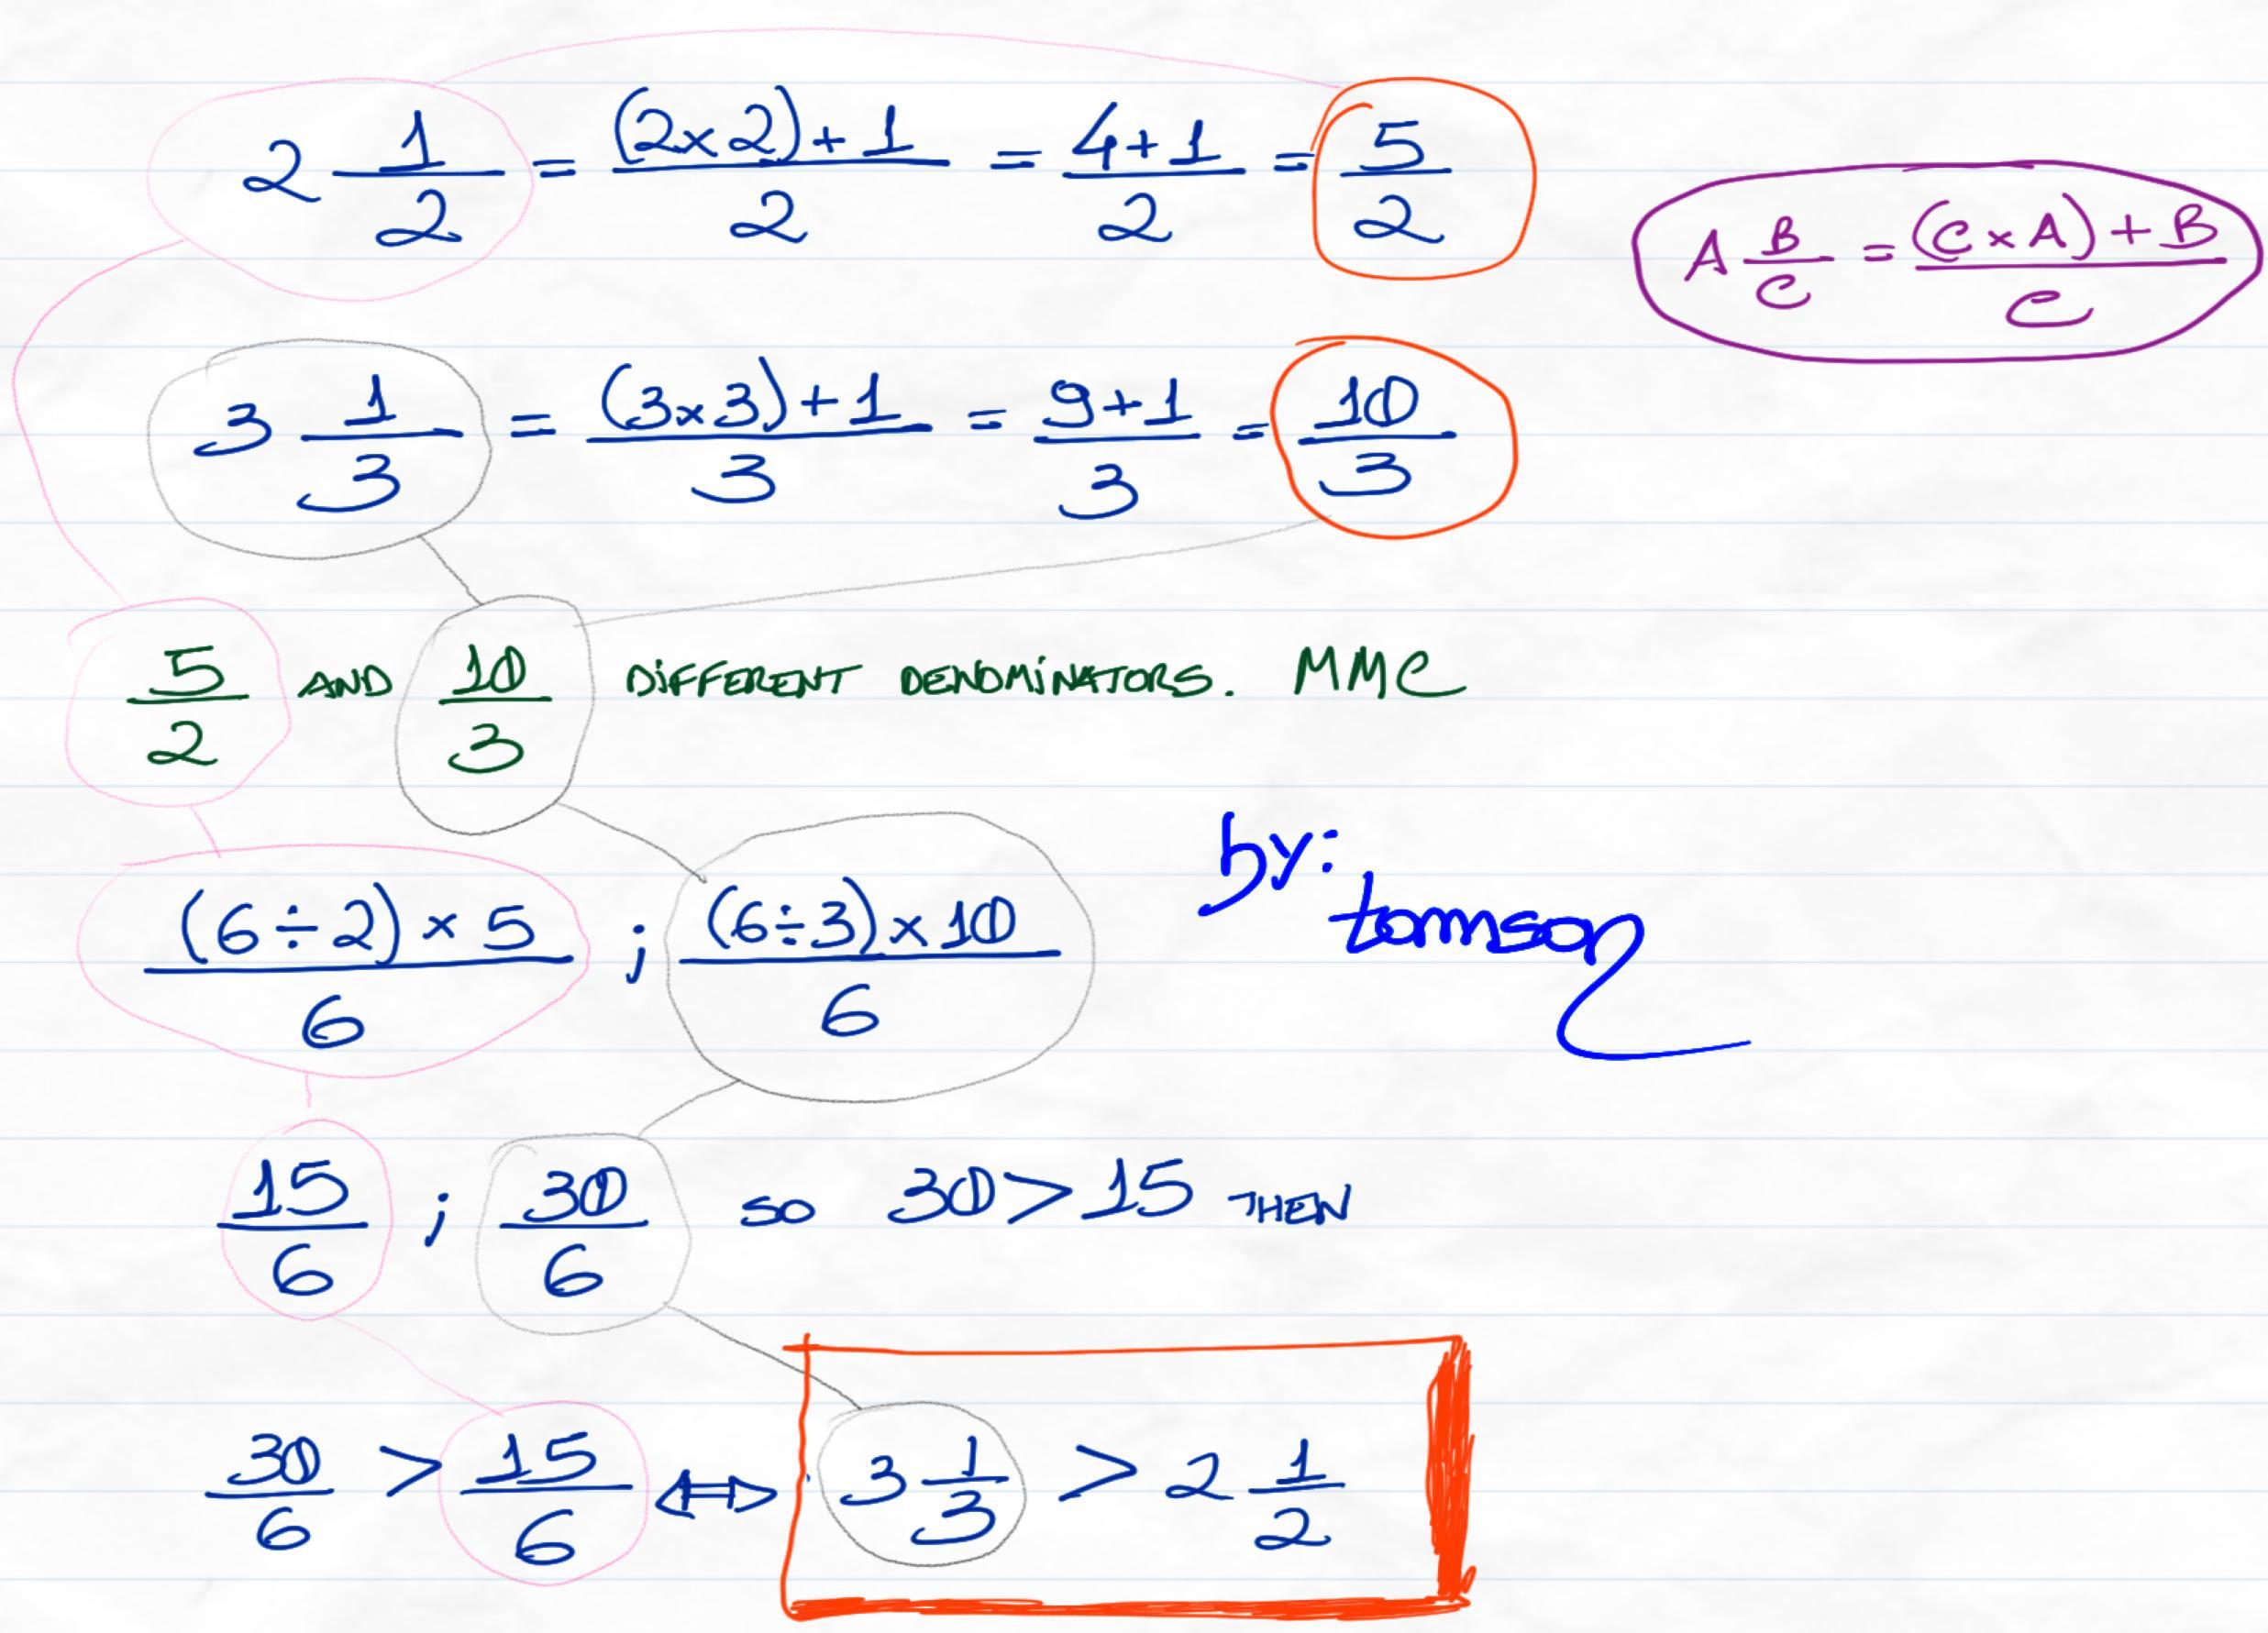 2 1/2 = (2×2)+1/2 = 4+1/2 = 5/2
A B/C = (C×A)+B/C
3 1/3 = (3×3)+1/3 = 9+1/3 = 10/3
5/2 AND 10/3 DIFFERENT DENOMINATORS. MMC
(6÷2)×5/6 ; (6÷3)×10/6
by:
tomson
15/6 ; 30/6 so 30>15 THEN
30/6 > 15/6 ⇔ 3 1/3 > 2 1/2